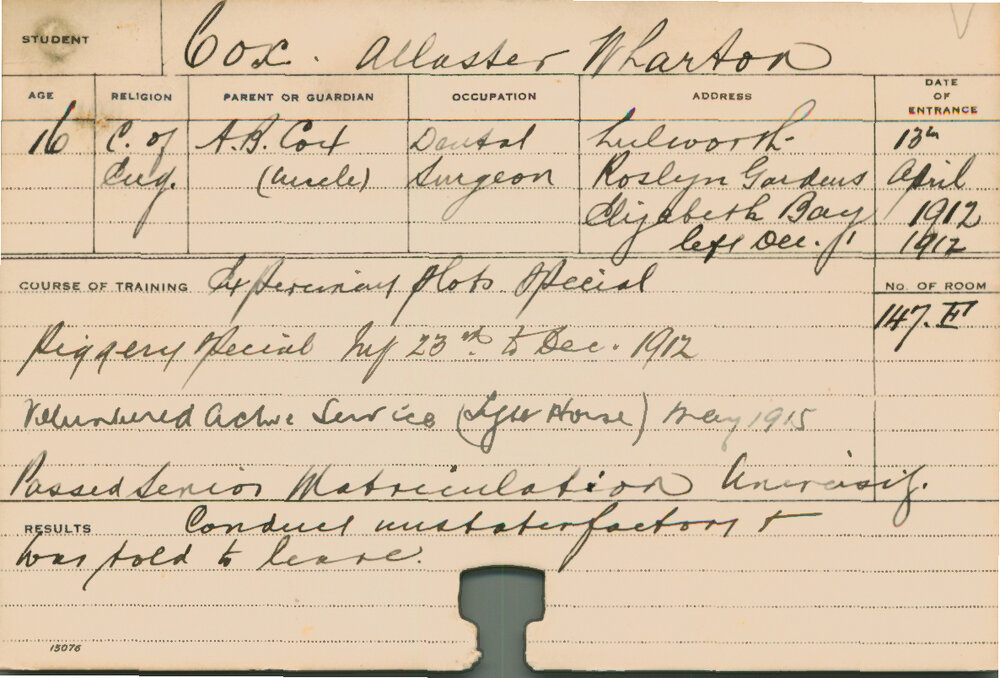 STUDENT Cox. Allaster Wharton
AGE RELIGION PARENT OR GUARDIAN OCCUPATION ADDRESS DATE OF ENTRANCE
16 C. of A. B. Cox Dental Lulworth 13th
Eng. (uncle) Surgeon Roslyn Gardens April
Elizabeth Bay 1912
left Dec. 1912
COURSE OF TRAINING Experiment Plots Special No. OF ROOM
147. E
Piggery Special 23rd to Dec. 1912
Volunteered Active Service (Light Horse) May 1915
Passed Senior Matriculation University.
RESULTS Conduct unsatisfactory +
was told to leave.
15076